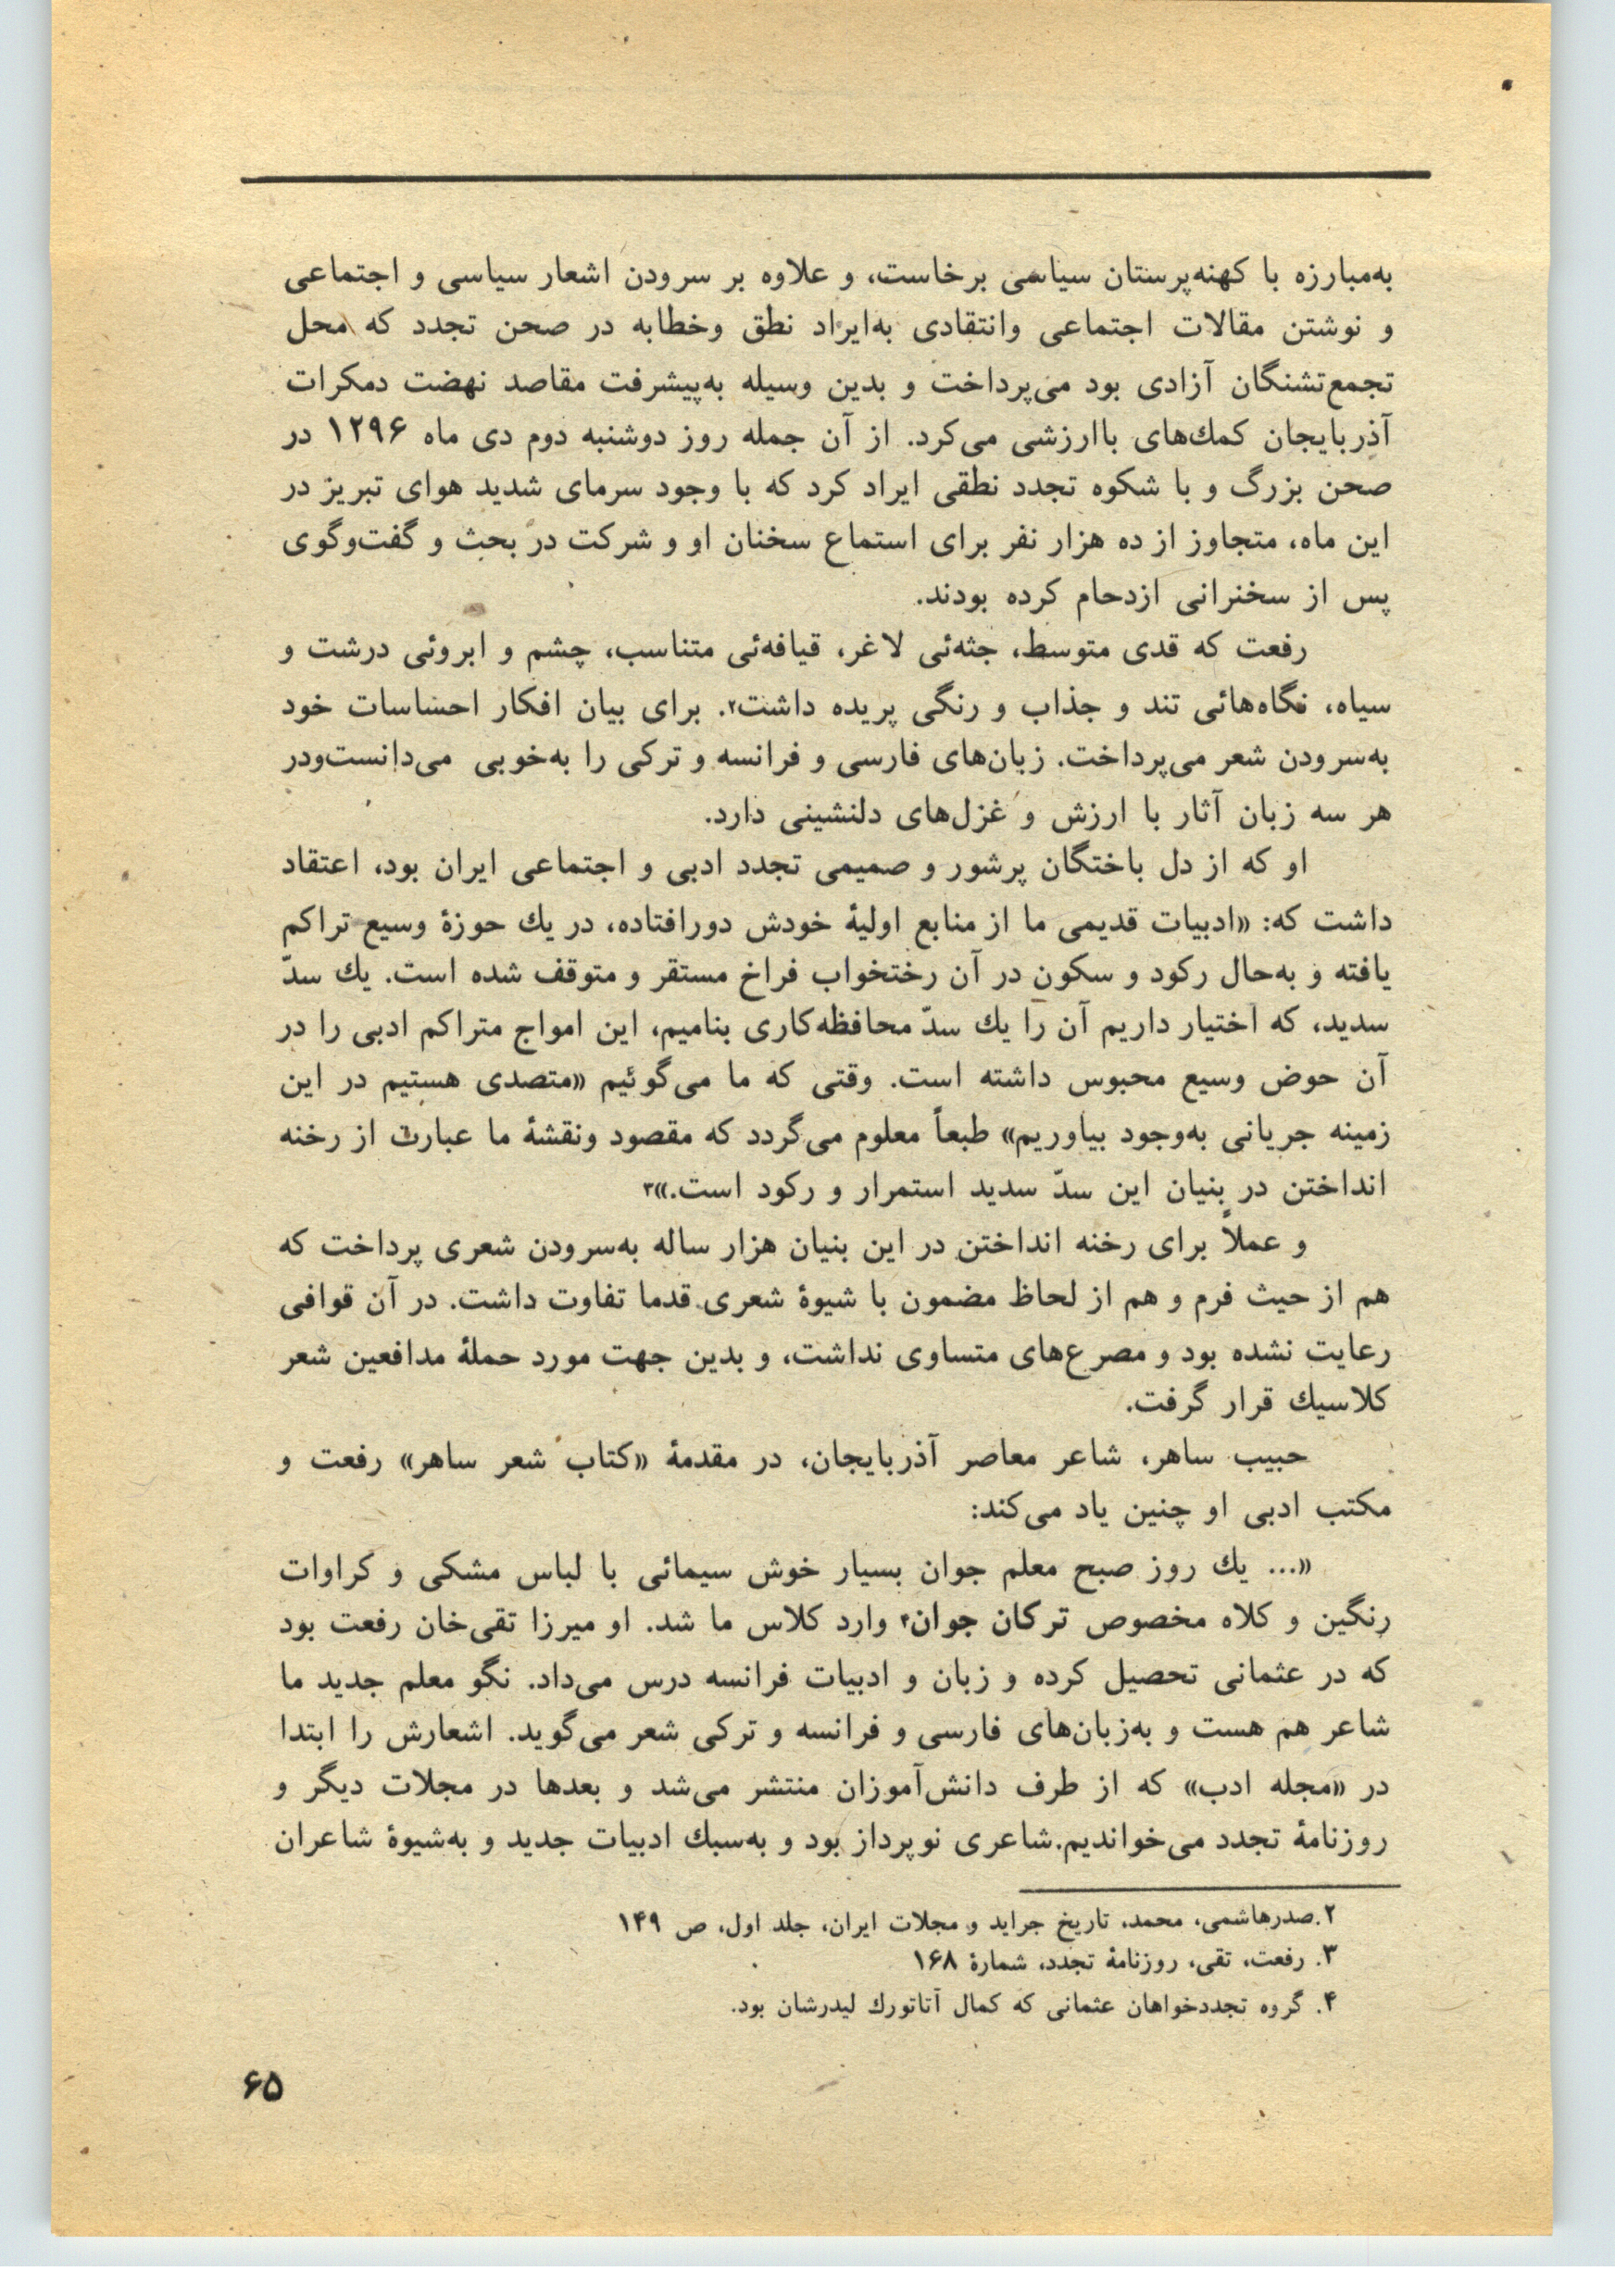 به‌مبارزه با کهنه‌پرستان سیاسی برخاست، و علاوه بر سرودن اشعار سیاسی و اجتماعی
و نوشتن مقالات اجتماعی وانتقادی به‌ایراد نطق وخطابه در صحن تجدد که محل
تجمع‌تشنگان آزادی بود می‌پرداخت و بدین وسیله به‌پیشرفت مقاصد نهضت دمکرات
آذربایجان کمك‌های باارزشی می‌کرد. از آن جمله روز دوشنبه دوم دی ماه ۱۲۹۶ در
صحن بزرگ و با شکوه تجدد نطقی ایراد کرد که با وجود سرمای شدید هوای تبریز در
این ماه، متجاوز از ده هزار نفر برای استماع سخنان او و شرکت در بحث و گفت‌وگوی
پس از سخنرانی ازدحام کرده بودند.
رفعت که قدی متوسط، جثه‌ئی لاغر، قیافه‌ئی متناسب، چشم و ابروئی درشت و
سیاه، نگاه‌هائی تند و جذاب و رنگی پریده داشت۲. برای بیان افکار احساسات خود
به‌سرودن شعر می‌پرداخت. زبان‌های فارسی و فرانسه و ترکی را به‌خوبی می‌دانست‌ودر
هر سه زبان آثار با ارزش و غزل‌های دلنشینی دارد.
او که از دل باختگان پرشور و صمیمی تجدد ادبی و اجتماعی ایران بود، اعتقاد
داشت که: «ادبیات قدیمی ما از منابع اولیهٔ خودش دورافتاده، در یك حوزهٔ وسیع تراکم
یافته و به‌حال رکود و سکون در آن رختخواب فراخ مستقر و متوقف شده است. یك سدّ
سدید، که اختیار داریم آن را یك سدّ محافظه‌کاری بنامیم، این امواج متراکم ادبی را در
آن حوض وسیع محبوس داشته است. وقتی که ما می‌گوئیم «متصدی هستیم در این
زمینه جریانی به‌وجود بیاوریم» طبعاً معلوم می‌گردد که مقصود ونقشهٔ ما عبارت از رخنه
انداختن در بنیان این سدّ سدید استمرار و رکود است.»۳
و عملاً برای رخنه انداختن در این بنیان هزار ساله به‌سرودن شعری پرداخت که
هم از حیث فرم و هم از لحاظ مضمون با شیوهٔ شعری قدما تفاوت داشت. در آن قوافی
رعایت نشده بود و مصرع‌های متساوی نداشت، و بدین جهت مورد حملهٔ مدافعین شعر
کلاسیك قرار گرفت.
حبیب ساهر، شاعر معاصر آذربایجان، در مقدمهٔ «کتاب شعر ساهر» رفعت و
مکتب ادبی او چنین یاد می‌کند:
«... یك روز صبح معلم جوان بسیار خوش سیمائی با لباس مشکی و کراوات
رنگین و کلاه مخصوص ترکان جوان۴ وارد کلاس ما شد. او میرزا تقی‌خان رفعت بود
که در عثمانی تحصیل کرده و زبان و ادبیات فرانسه درس می‌داد. نگو معلم جدید ما
شاعر هم هست و به‌زبان‌های فارسی و فرانسه و ترکی شعر می‌گوید. اشعارش را ابتدا
در «مجله ادب» که از طرف دانش‌آموزان منتشر می‌شد و بعدها در مجلات دیگر و
روزنامهٔ تجدد می‌خواندیم.شاعری نوپرداز بود و به‌سبك ادبیات جدید و به‌شیوهٔ شاعران
۲.صدرهاشمی، محمد، تاریخ جراید و مجلات ایران، جلد اول، ص ۱۴۹
۳. رفعت، تقی، روزنامهٔ تجدد، شمارهٔ ۱۶۸
۴. گروه تجددخواهان عثمانی که کمال آتاتورك لیدرشان بود.
۶۵